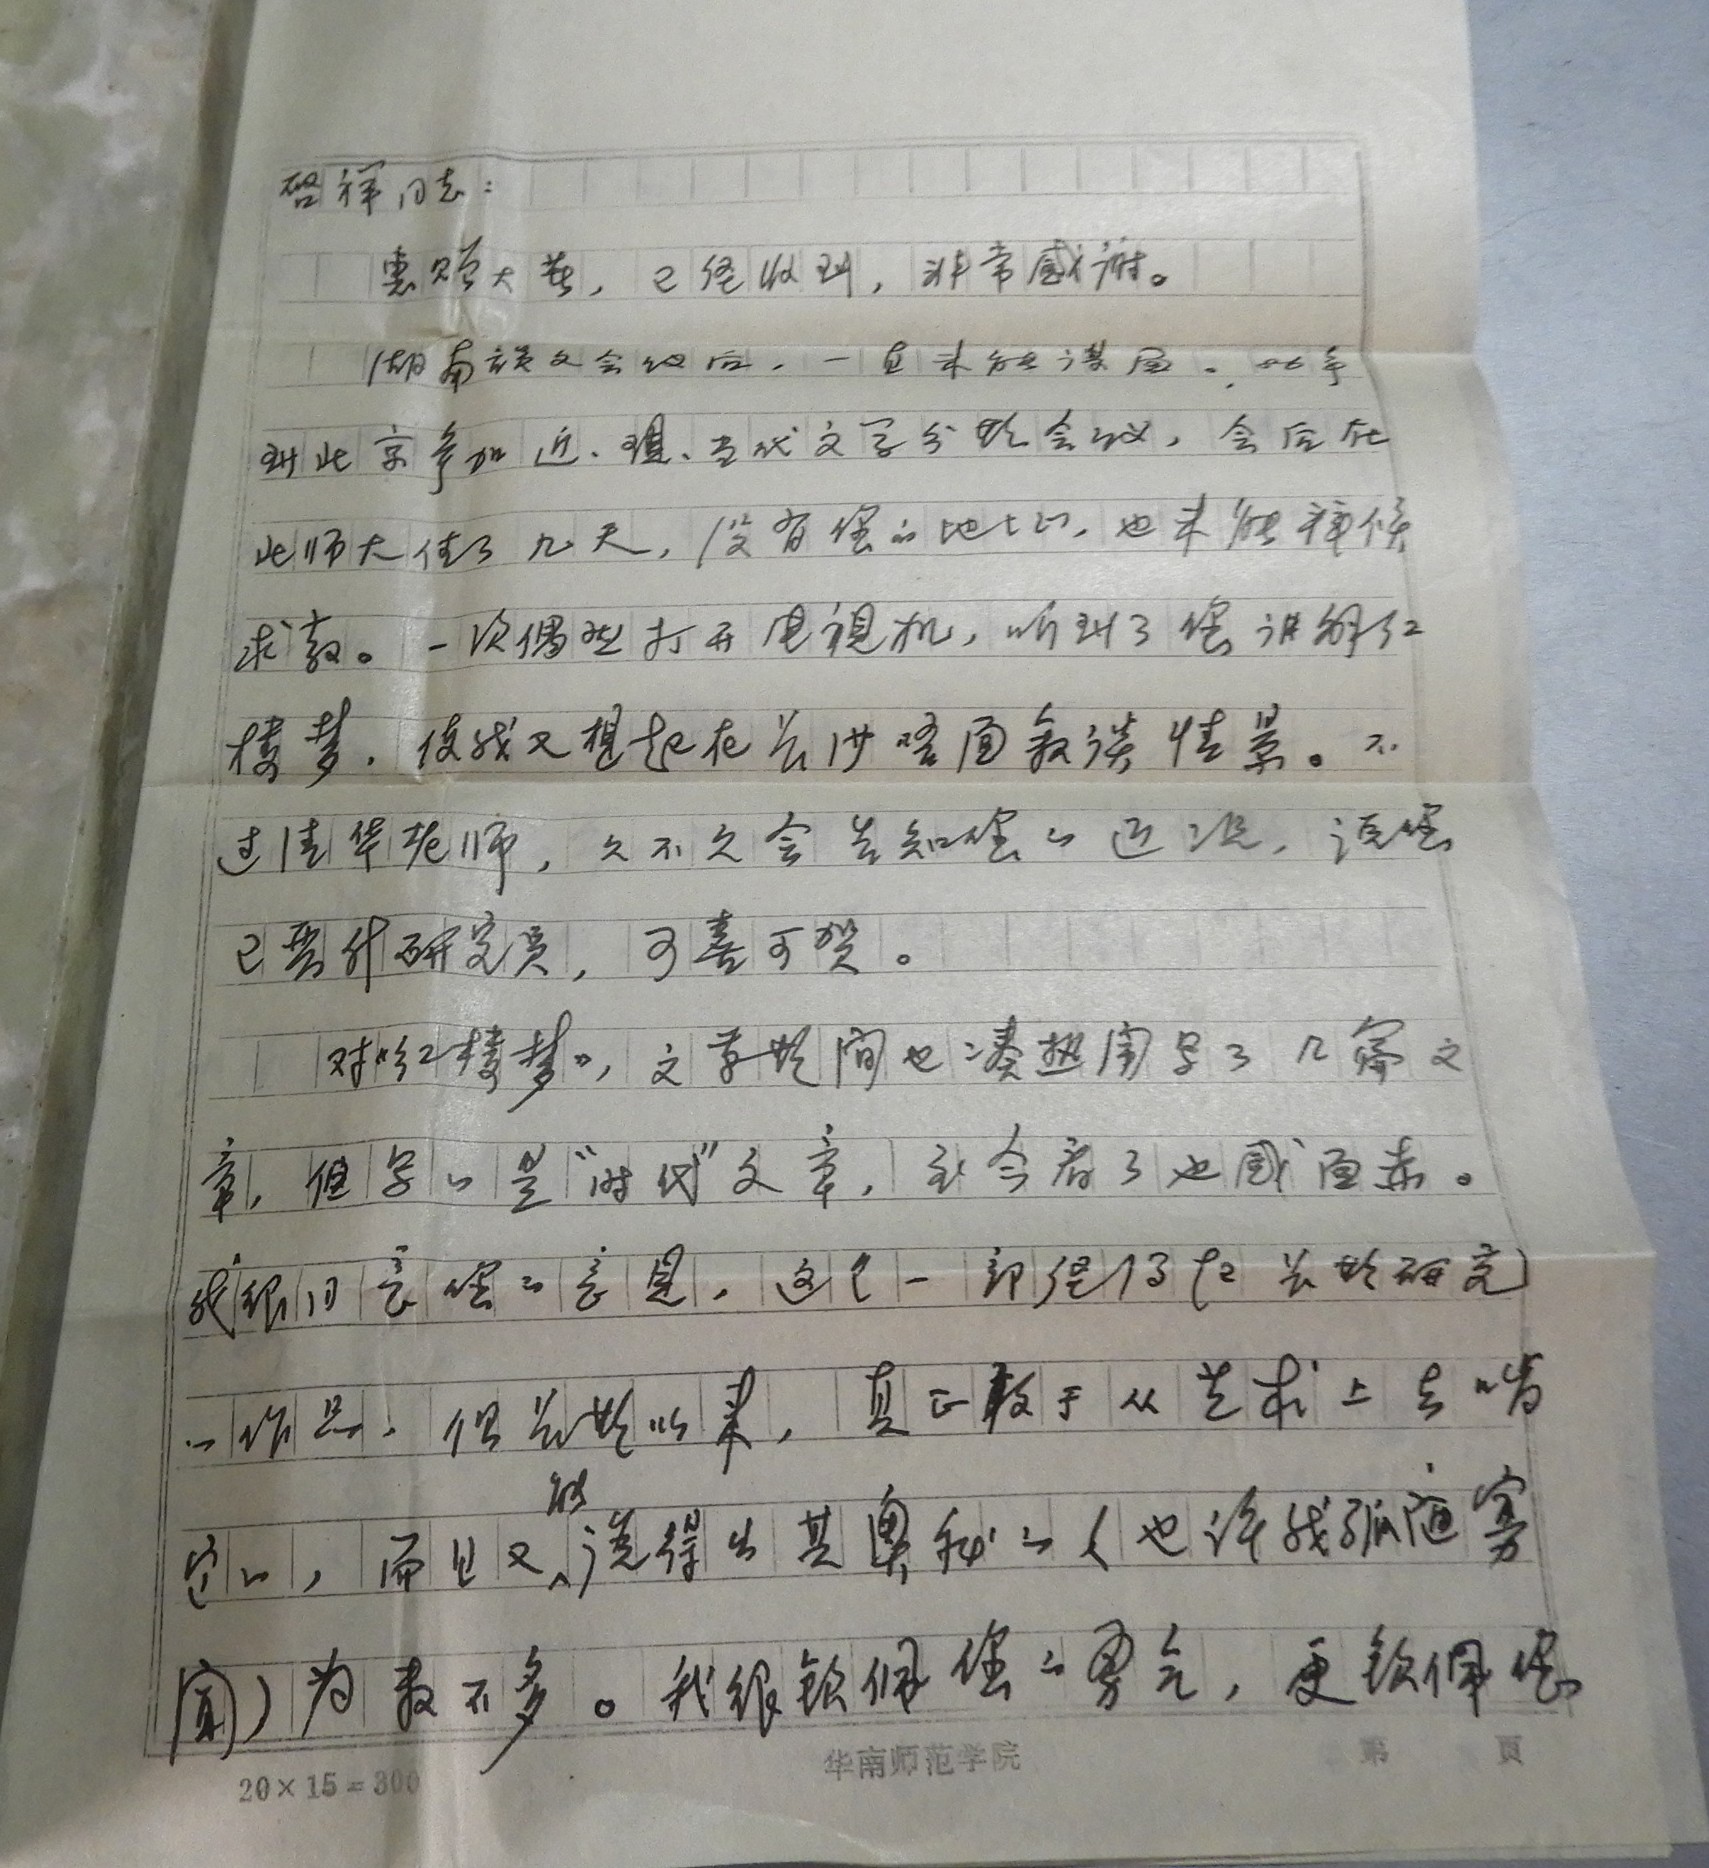 启祥同志：
惠赠大著，已经收到，非常感谢。
湖南该文会议后，一直未能谋面。
到北京参加近、现、当代文学分期会议，会后在
北师大住了几天，没有您的地址，也未能拜候
求教。一次偶然打开电视机，听到了您讲解红
楼梦，使我又想起在长沙晤面叙谈情景。不
过清华老师，久不久会告知您的近况，说您
已晋升研究员，可喜可贺。
对《红楼梦》，文革期间也凑热闹写了几篇文
章，但写的是“时代”文章，至今看了也感面赤。
我很同意您的意见，这是一部经得起长期研究
的作品，但长期以来，真正敢于从艺术上去啃
它的，而且又能说得出其奥秘的（也许我孤陋寡
闻）为数不多。我很钦佩您的勇气，更钦佩您
20×15=300
华南师范学院
第 页